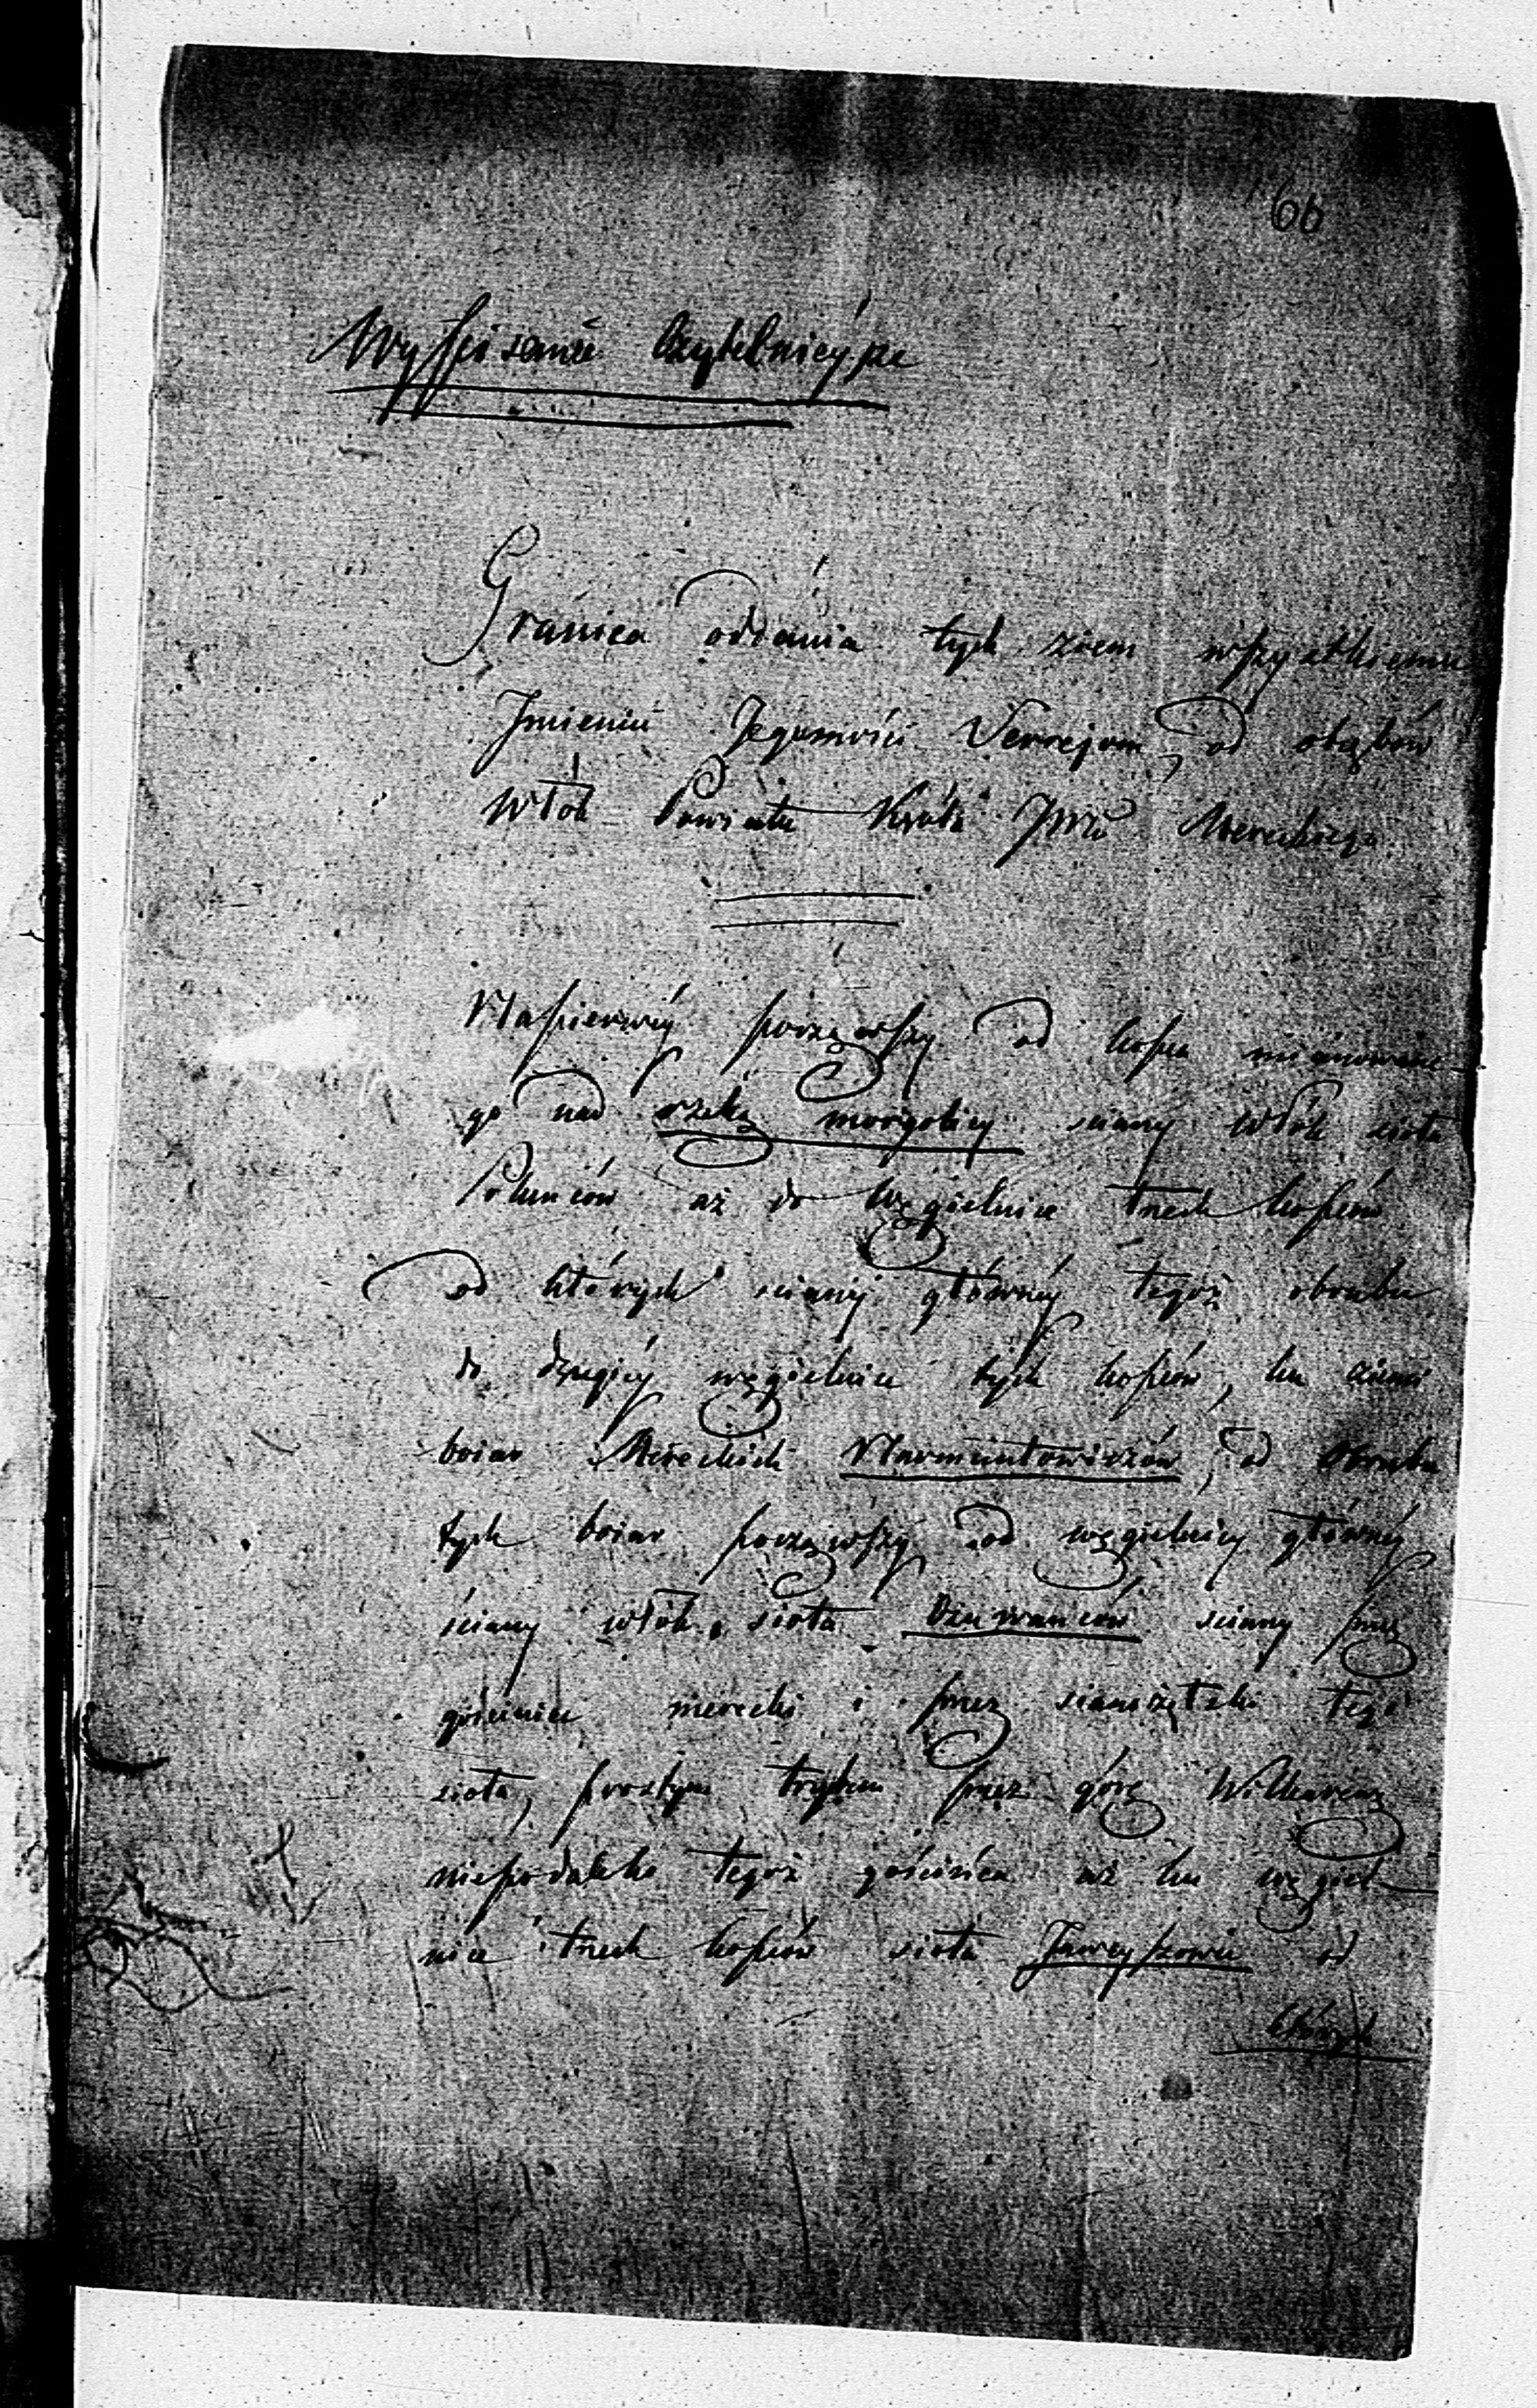 66
Wypisanie Czytelnieysze
Granica oddania tych ziem wszystkiemu
Jmieniu Jegomości Serrejom, od obrębów
Włók Powiatu Króla Jmci Mereckiego
Napierwéj począwszy od kopca mianowane-
go nad rzeką morgolicy ściany Włók sioła
Poluńców aż do Węgielnice trzech kopców
od których ściany głównéj tegoż obrubu
do drugiéj węgielnice tych kopców, ku ziemi
boiar Mereckich Narmuntowiczów, od Obrubu
tych boiar począwszy od węgielnicy głównéj
ściany włók sioła Dziewańców ściany przez
gościniec merecki i przez sianożątki tego
sioła, prostym trybem przez górę Wilkarczą
niepodaleko tegoż gościńca aż ku węgiel-
nice trzech kopców sioła Janczyszowie od
których